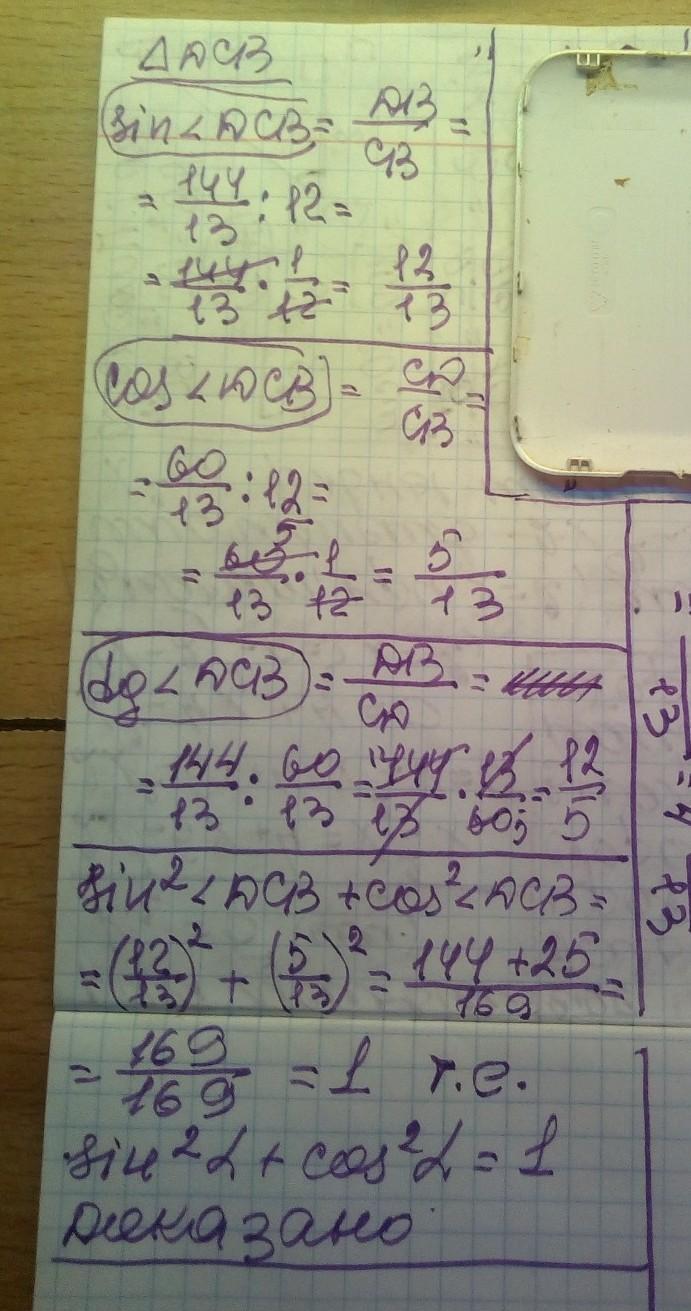 △DCB
sin<DCB = DB/CB =
= 144/13 : 12 =
= 144/13 · 1/12 = 12/13
cos<DCB = CD/CB =
= 60/13 : 12 =
= 60/13 · 1/12 = 5/13
5
tg<DCB = DB/CD =
= 144/13 : 60/13 = 144/13 · 13/60 5 = 12/5
sin²<DCB + cos²<DCB =
= (12/13)² + (5/13)² = (144 + 25)/169 =
= 169/169 = 1 т.е.
sin²α + cos²α = 1
Доказано